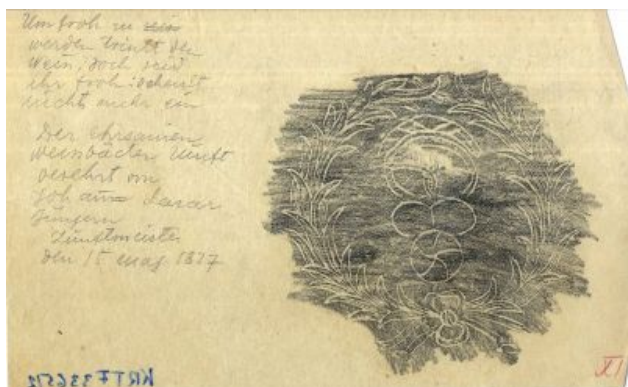 Um froh zu sein
werden trinkt den
Wein, doch seid
ihr froh: schenkt
nicht mehr ein
Der ehrsamen
Weisbäcker Zunft
verehrt von
Johann Lasar
Jüngern
Zunftmeister
den 15 May 1827
KRTF 3365/2
XI